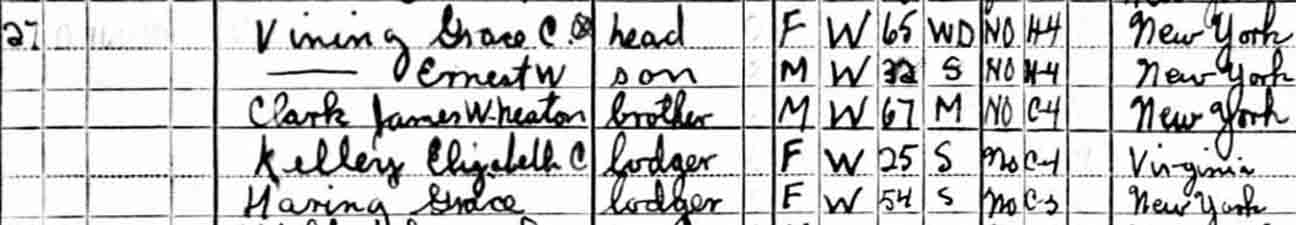 27 Vining Grace C. ⓧ head F W 65 WD NO H-4 New York
—— Ernest W son M W 32 S NO H-4 New York
Clark James Wheaton brother M W 67 M NO C-4 New York
Kelley Elizabeth C lodger F W 25 S No C-4 Virginia
Haring Grace lodger F W 54 S No C-3 New York